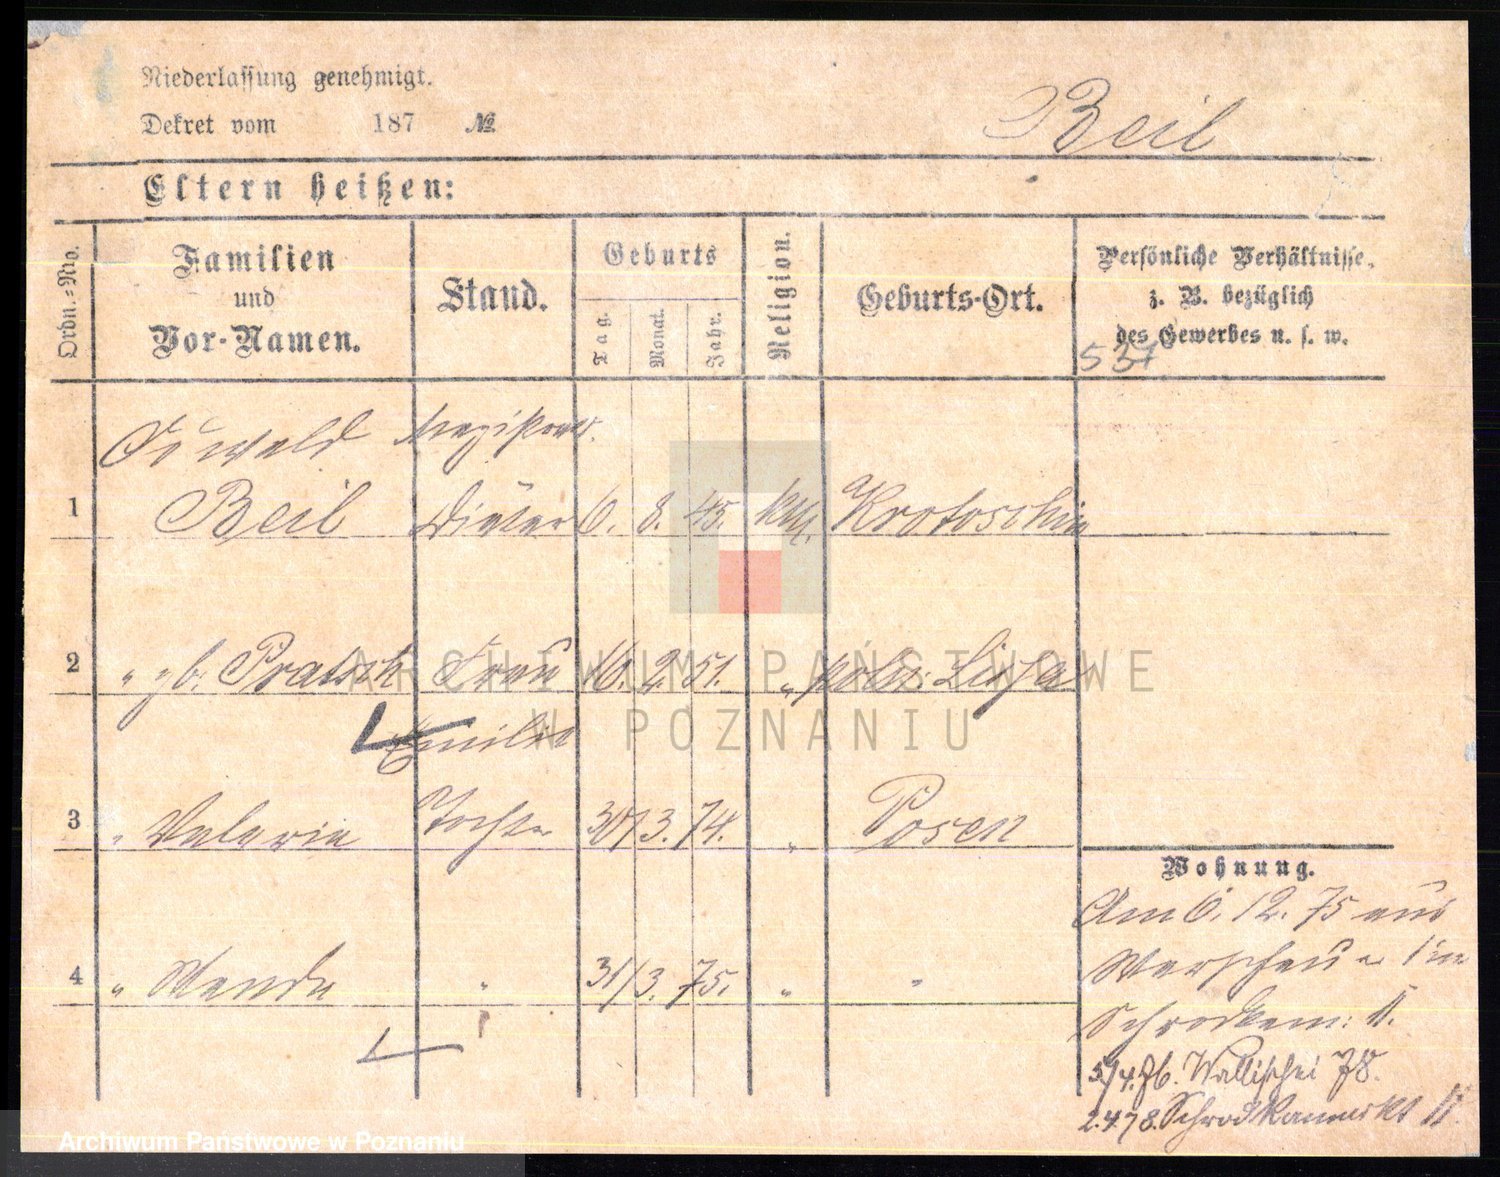 Niederlassung genehmigt.
Dekret vom 187 №
Beil
Eltern heißen:
Ordn.=Nro.
Familien
und
Vor-Namen.
Stand.
Geburts
Tag.
Monat.
Jahr.
Religion.
Geburts-Ort.
Persönliche Verhältnisse,
z. B. bezüglich
des Gewerbes u. s. w.
537
Oswald Magistrats.
1 Beil Diätar 6. 8. 45. kth. Krotoschin
2 " gb. Pratsch Frau 16. 2. 51. " poln. Lissa
Emilie
3 " Valeria Tochter 30/ 3. 74. " Posen
4 " Wanda " 31/ 3. 75. " "
Wohnung.
Am 6. 12. 75 aus
Warschau
Schrodkam: 11.
3/4. 76. Wallischei 78.
2.4.78. Schrodkamarkt 11.
ARCHIWUM PAŃSTWOWE
W POZNANIU
Archiwum Państwowe w Poznaniu